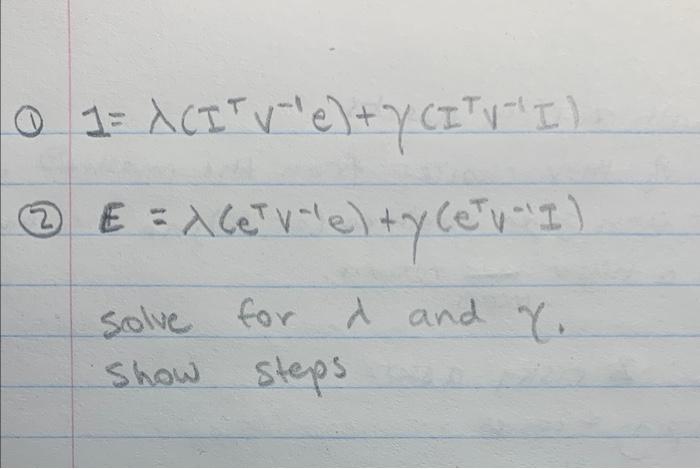 ① 1 = λ(Iᵀ V⁻¹ e) + γ(Iᵀ V⁻¹ I)
② E = λ(eᵀ V⁻¹ e) + γ(eᵀ V⁻¹ I)
solve for λ and γ.
show steps